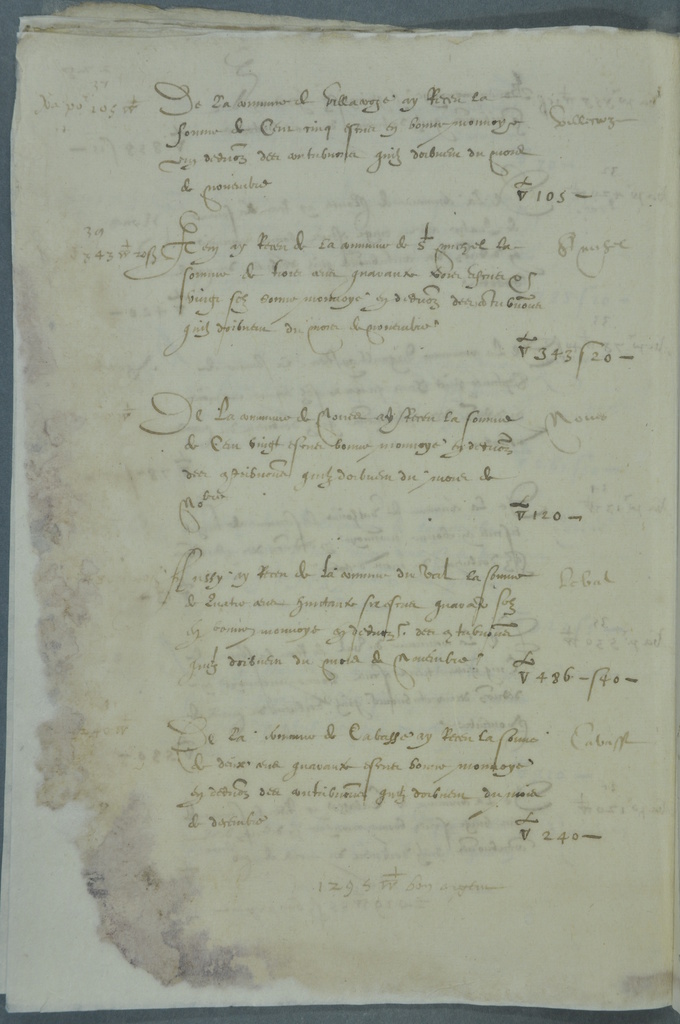 De La commune de Villacroze ay Receu la
somme de Cent cinq escus en bonne monnoye
en deduon des contributions quilz doibvent du moys
de novembre
Villecroze
105 –
Item ay Receu de La commune de St michel la
somme de trois cens quarante trois escus
vingt solz bonne monnoye en deduon des contribuons
quilz doibvent du moys de novembre
St michel
343 s 20 –
De La commune de Noues ay Receu la somme
de Cent vingt escus bonne monnoye en deduon
des contribuons quilz doibvent du mois de
Nobre
Noues
120 –
Aussy ay Receu de la commune du Val la somme
de Quatre cens huictante six escus quarante solz
en bonne monnoye en deduon des contribuons
quilz doibvent du mois de Novembre
Le Val
486 – s 40 –
De La commune de Cabasse ay Receu la somme
de deux cens quarante escus bonne monnoye
en deduon des contribuons quilz doibvent du mois
de decembre
Cabasse
240 –
1295 bon argent